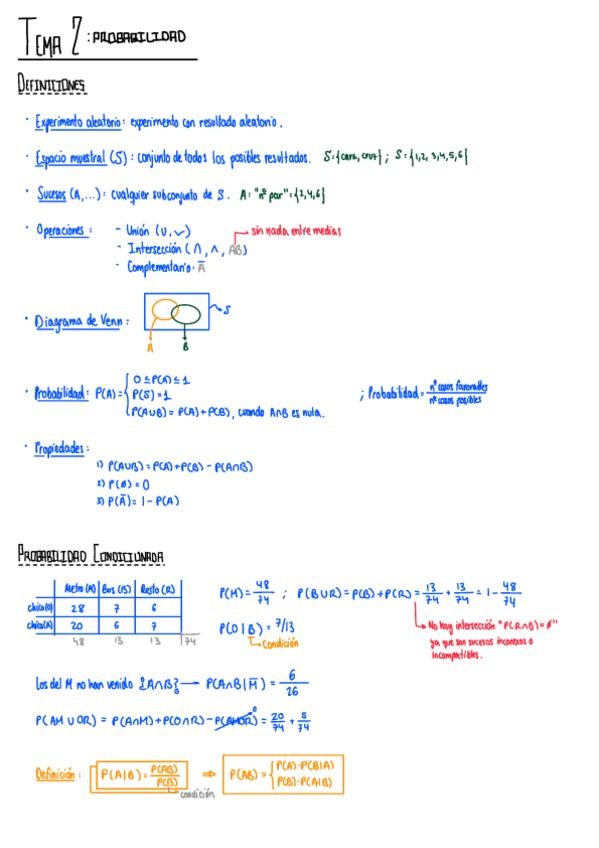 TEMA 2: PROBABILIDAD
DEFINICIONES
· Experimento aleatorio: experimento con resultado aleatorio.
· Espacio muestral (S): conjunto de todos los posibles resultados. S={cara, cruz}; S={1,2,3,4,5,6}
· Sucesos (A,...): cualquier subconjunto de S. A="nº par"={2,4,6}
· Operaciones: - Unión (∪,∨)
sin nada entre medias
- Intersección (∩, ∧, AB)
- Complementario: A̅
· Diagrama de Venn:
S
A B
· Probabilidad: P(A)= { 0≤P(A)≤1
P(S)=1
P(A∪B)=P(A)+P(B), cuando A∩B es nula.
; Probabilidad = nº casos favorables / nº casos posibles
· Propiedades:
1) P(A∪B)=P(A)+P(B)-P(A∩B)
2) P(ø)=0
3) P(A̅)=1-P(A)
PROBABILIDAD CONDICIONADA
Metro (M) Bus (B) Resto (R)
chico(O) 28 7 6
chica(A) 20 6 7
48 13 13 74
P(M)=48/74 ; P(B∪R)=P(B)+P(R)=13/74+13/74=1-48/74
P(O|B)=7/13
Condición
No hay intersección "P(R∩B)=ø"
ya que son sucesos inconexos o
incompatibles.
Los del M no han venido {A∩B} → P(A∩B|M̅)=6/26
P(AM∪OR)=P(A∩M)+P(O∩R)-P(AMOR)⁰=20/74+5/74
Definición: P(A|B)=P(AB)/P(B) ⇒ P(AB)= { P(A)·P(B|A)
P(B)·P(A|B)
condición